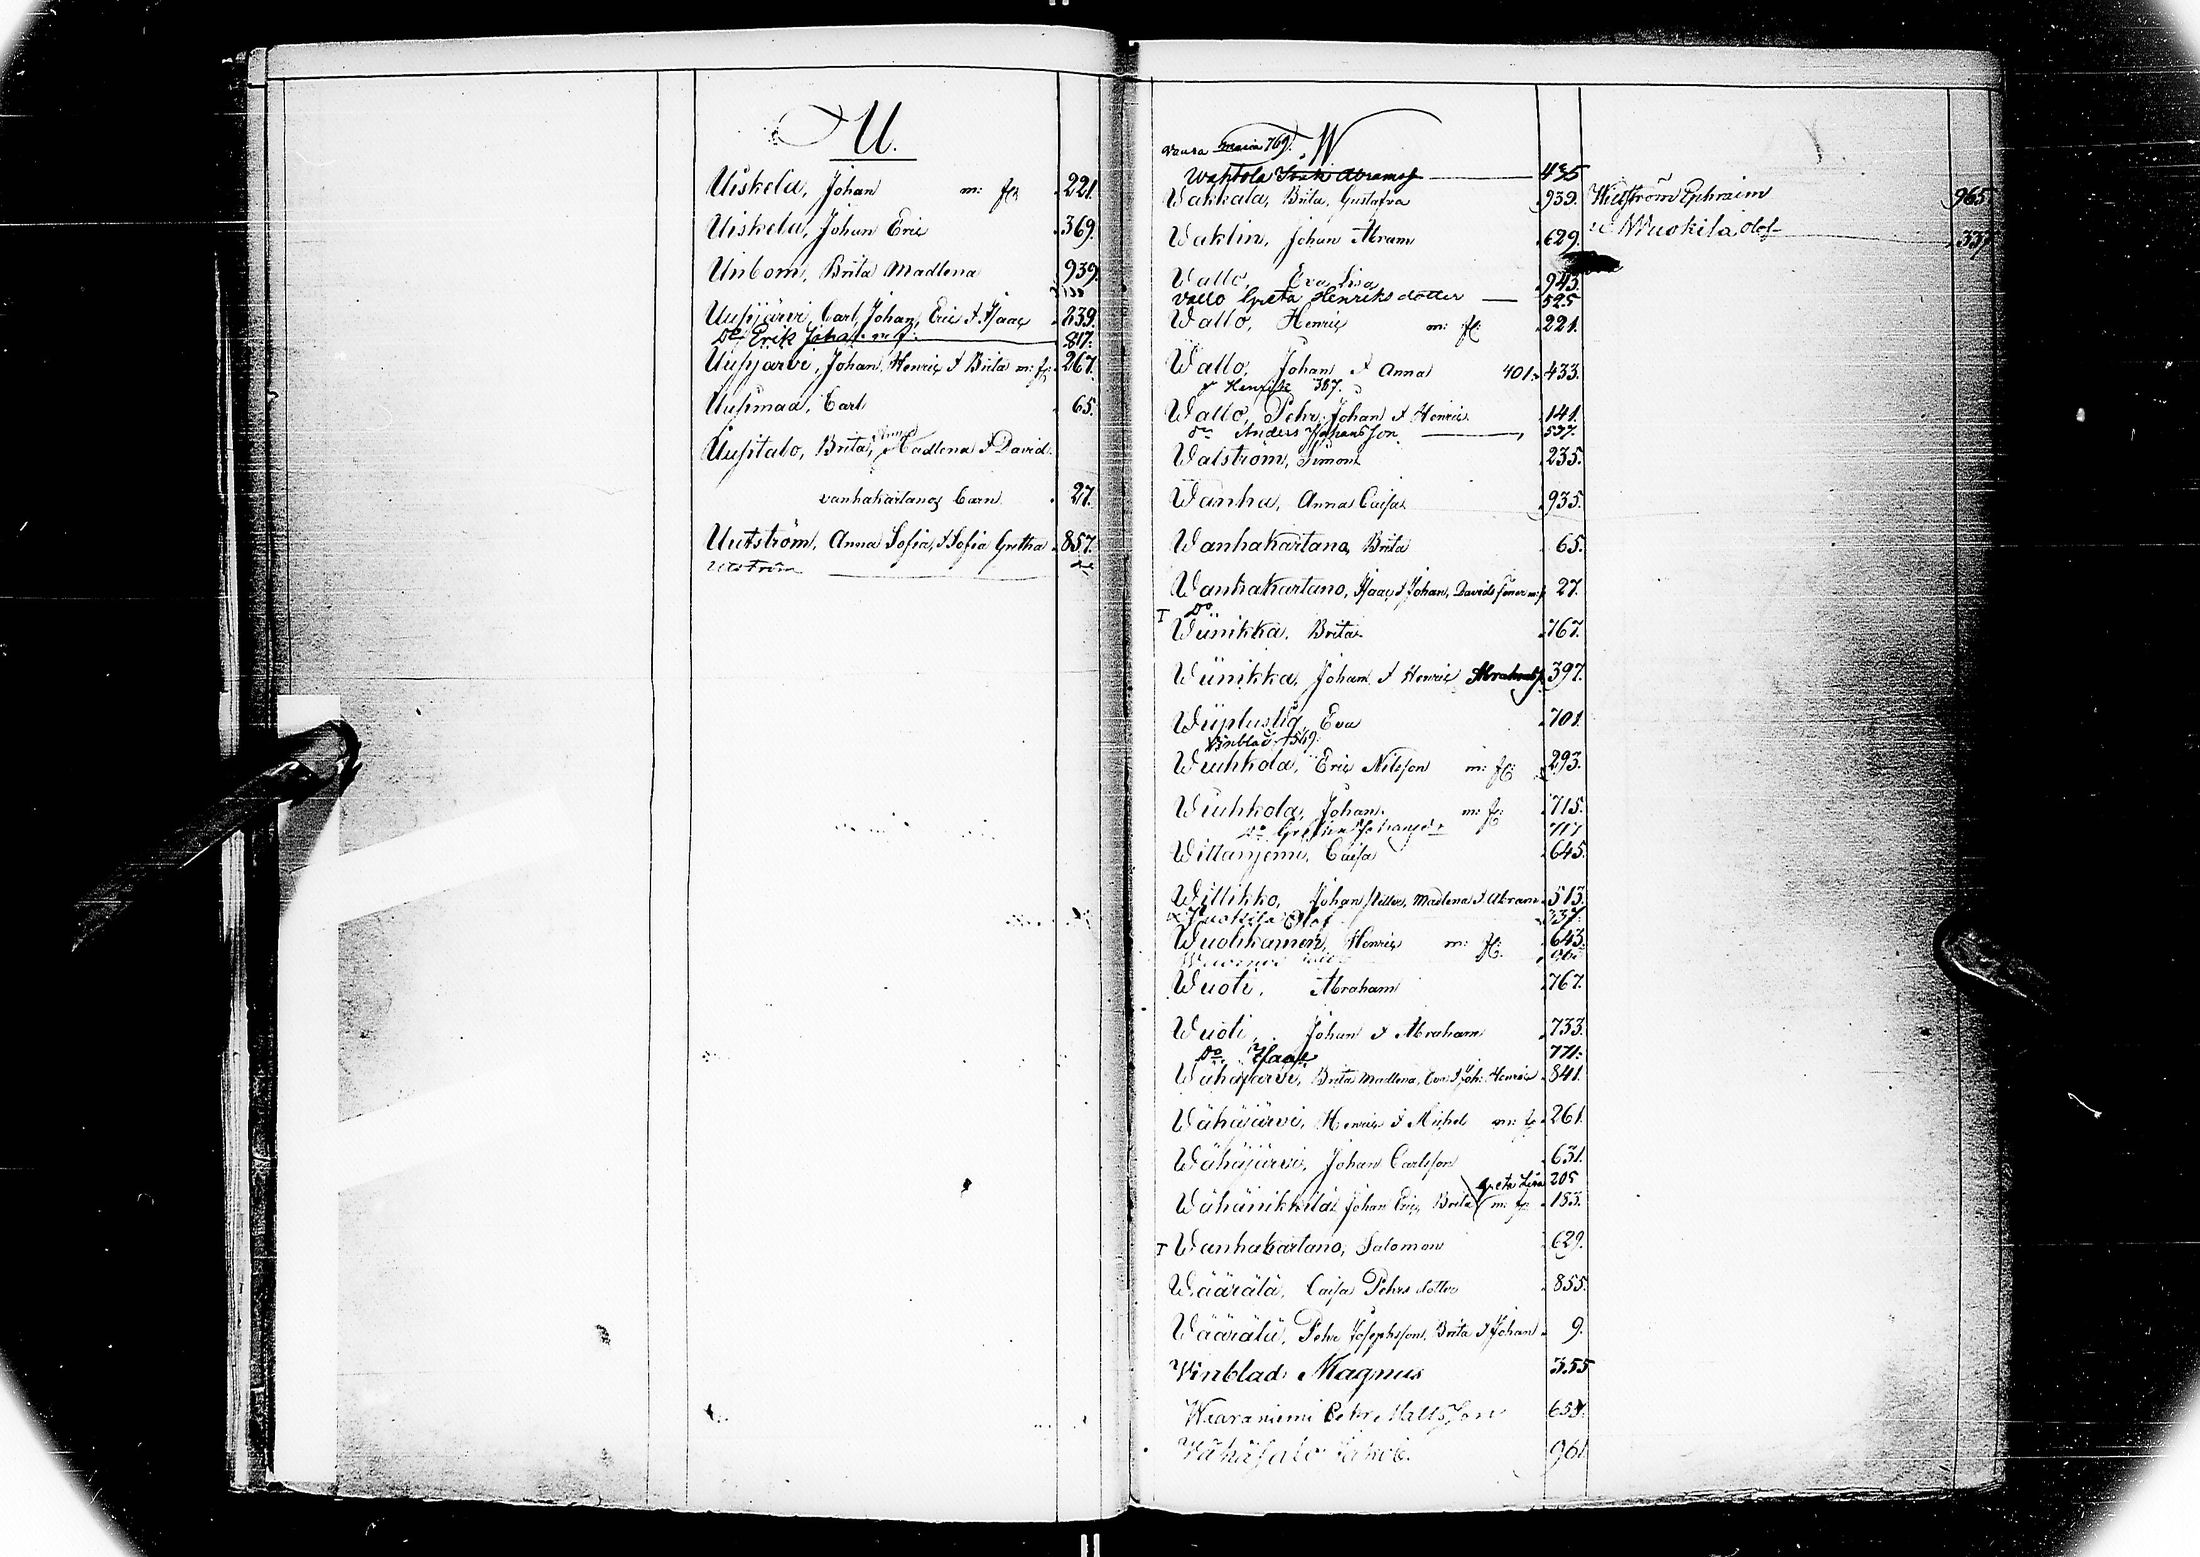 U.
Uiskela, Johan m: fl: 221.
Uiskela, Johan Eric 369.
Unbom, Brita Madlena 939.
Uusijärvi, Carl, Johan, Eric & Isaac 239.
Do Erik Johansf: 817.
Uusijärvi, Johan, Henric & Brita m: fl: 267.
Uusimaa, Carl 65.
Uusitalo, Brita, Anna Madlena & David.
vanhakartanos barn 27.
Uutström, Anna Sofia, & Sofia Gretha 857.
Utström do
Maria 769. W
Wahtola Abramsf 435
Wakkala, Brita, Gustafva 939.
Waklin, Johan Abram 629.
Wallo, Eva Lisa 943.
Vallo Greta Henriksdotter 525
Wallo, Henric m: fl: 221.
Wallo, Johan & Anna 401. 433.
& Henrik 387.
Wallo, Pehr, Johan & Henric 141.
do Anders Johansson 597.
Walström, Simon 235.
Wanha, Anna Caisa 935.
Wanhakartano, Brita 65.
Wanhakartano, Isaac & Johan, Davids söner m: f 27.
I Do
Wiinikka, Brita 767.
Wiinikka, Johan & Henric Abrahamsf. 397.
Wiiplustig, Eva 701.
Vinblad 569.
Wiuhkola, Eric Nilsson m: fl: 293.
Wiuhkola, Johan m: fl: 715.
Do Johansd:r 717
Willanjemi, Caisa 645.
Willikko, Johan, Madlena & Abram 513.
Vuokila Olof 337.
Wuolikainen, Henric m: fl: 643.
Wuoti, Abraham 767.
Wuoti, Johan & Abraham 733.
Do Isaak 771.
Wähäjärvi, Brita Madlena, Eva & Joh: Henric 841.
Wähäjärvi, Henric & Michel m: fl 261.
Wähäjärvi, Johan Carlsson 631.
Greta Lisa 205
Wähänikkilä, Johan Eric, Brita m: fl: 183.
I Wanhakartano, Salomon 629.
Wäärälä, Caisa Pehrsdotter 855.
Wäärälä, Pehr Josephsson, Brita & Johan 9.
Vinblad, Magnus 355
Waaraniemi Pehr Mattsson 653.
Vähäsalo Jakob. 961
Widström Ephraim 965
Wuokila Olof 337